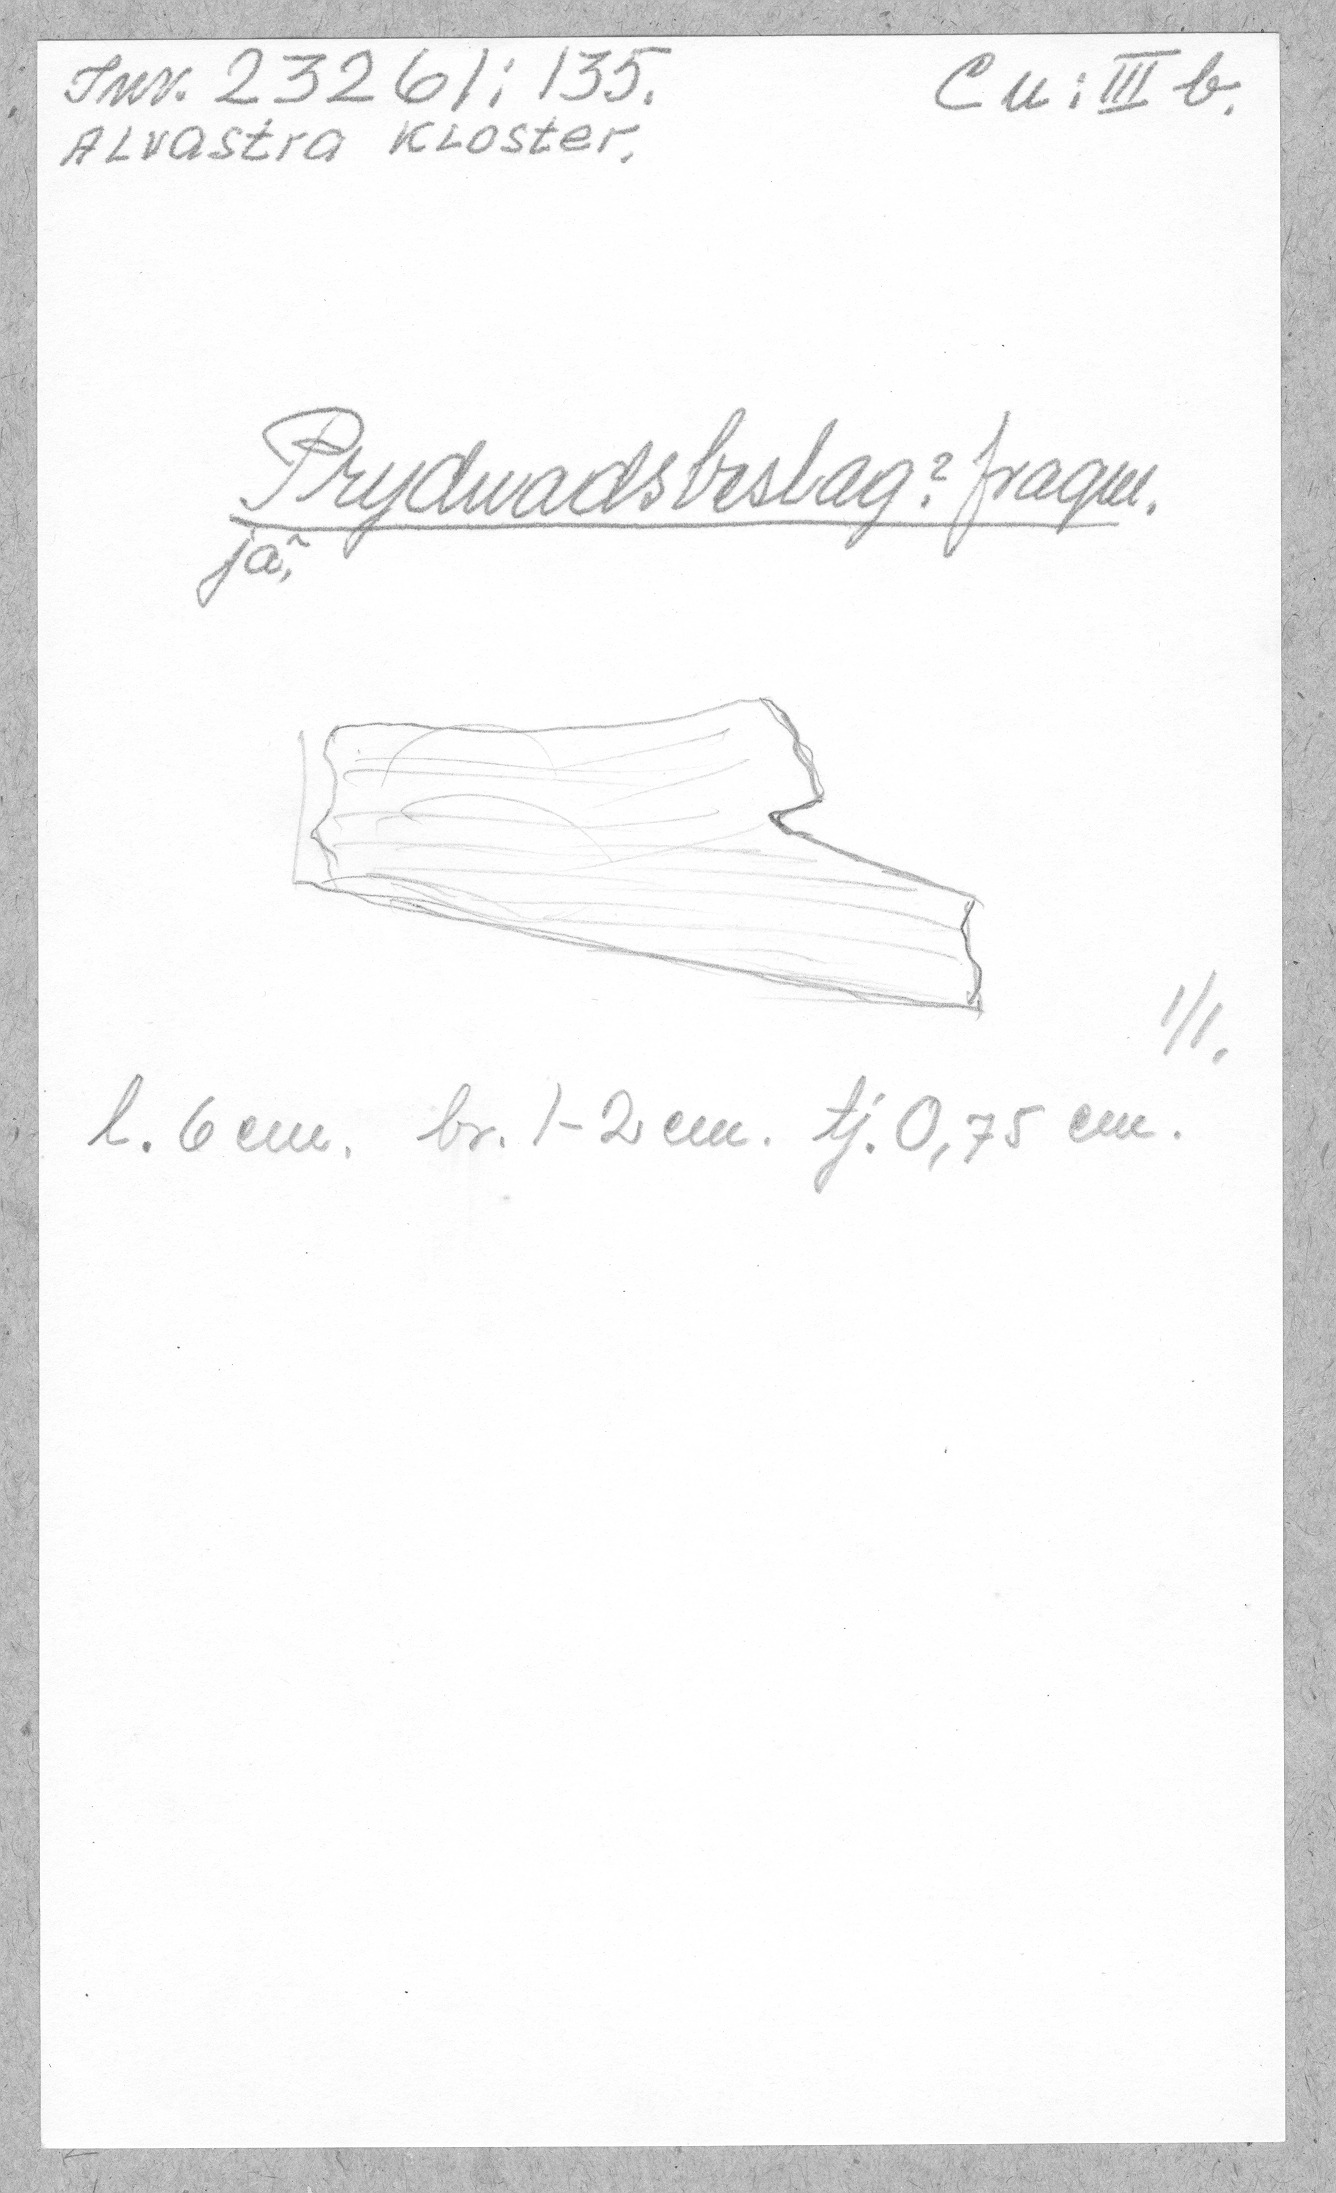 Inv. 23261: 135. Cu: III b.
Alvastra Kloster.
Prydnadsbeslag? fragm.
1/1.
l. 6 cm. br. 1-2 cm. tj. 0,75 cm.